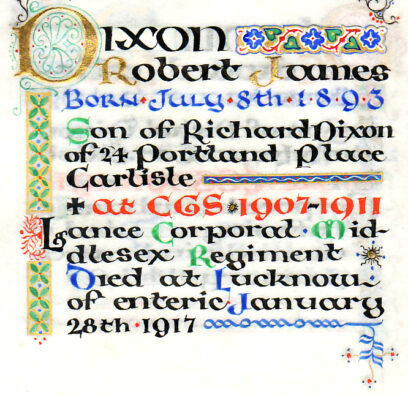 Dixon
Robert James
Born · July · 8th · 1 · 8 · 9 · 3
Son of Richard Dixon
of 24 Portland Place
Carlisle
✝ at CGS 1907–1911
Lance Corporal · Mid-
dlesex Regiment
Died at Lucknow
of enteric January
28th · 1917